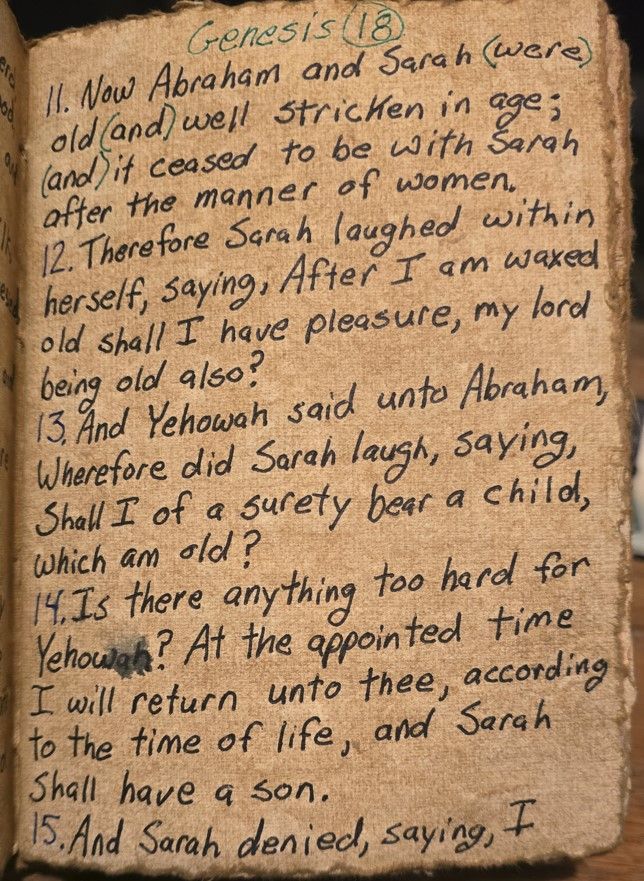 Genesis (18)
11. Now Abraham and Sarah (were)
old (and) well stricken in age;
(and) it ceased to be with Sarah
after the manner of women.
12. Therefore Sarah laughed within
herself, saying, After I am waxed
old shall I have pleasure, my lord
being old also?
13. And Yehowah said unto Abraham,
Wherefore did Sarah laugh, saying,
Shall I of a surety bear a child,
which am old?
14. Is there anything too hard for
Yehowah? At the appointed time
I will return unto thee, according
to the time of life, and Sarah
shall have a son.
15. And Sarah denied, saying, I